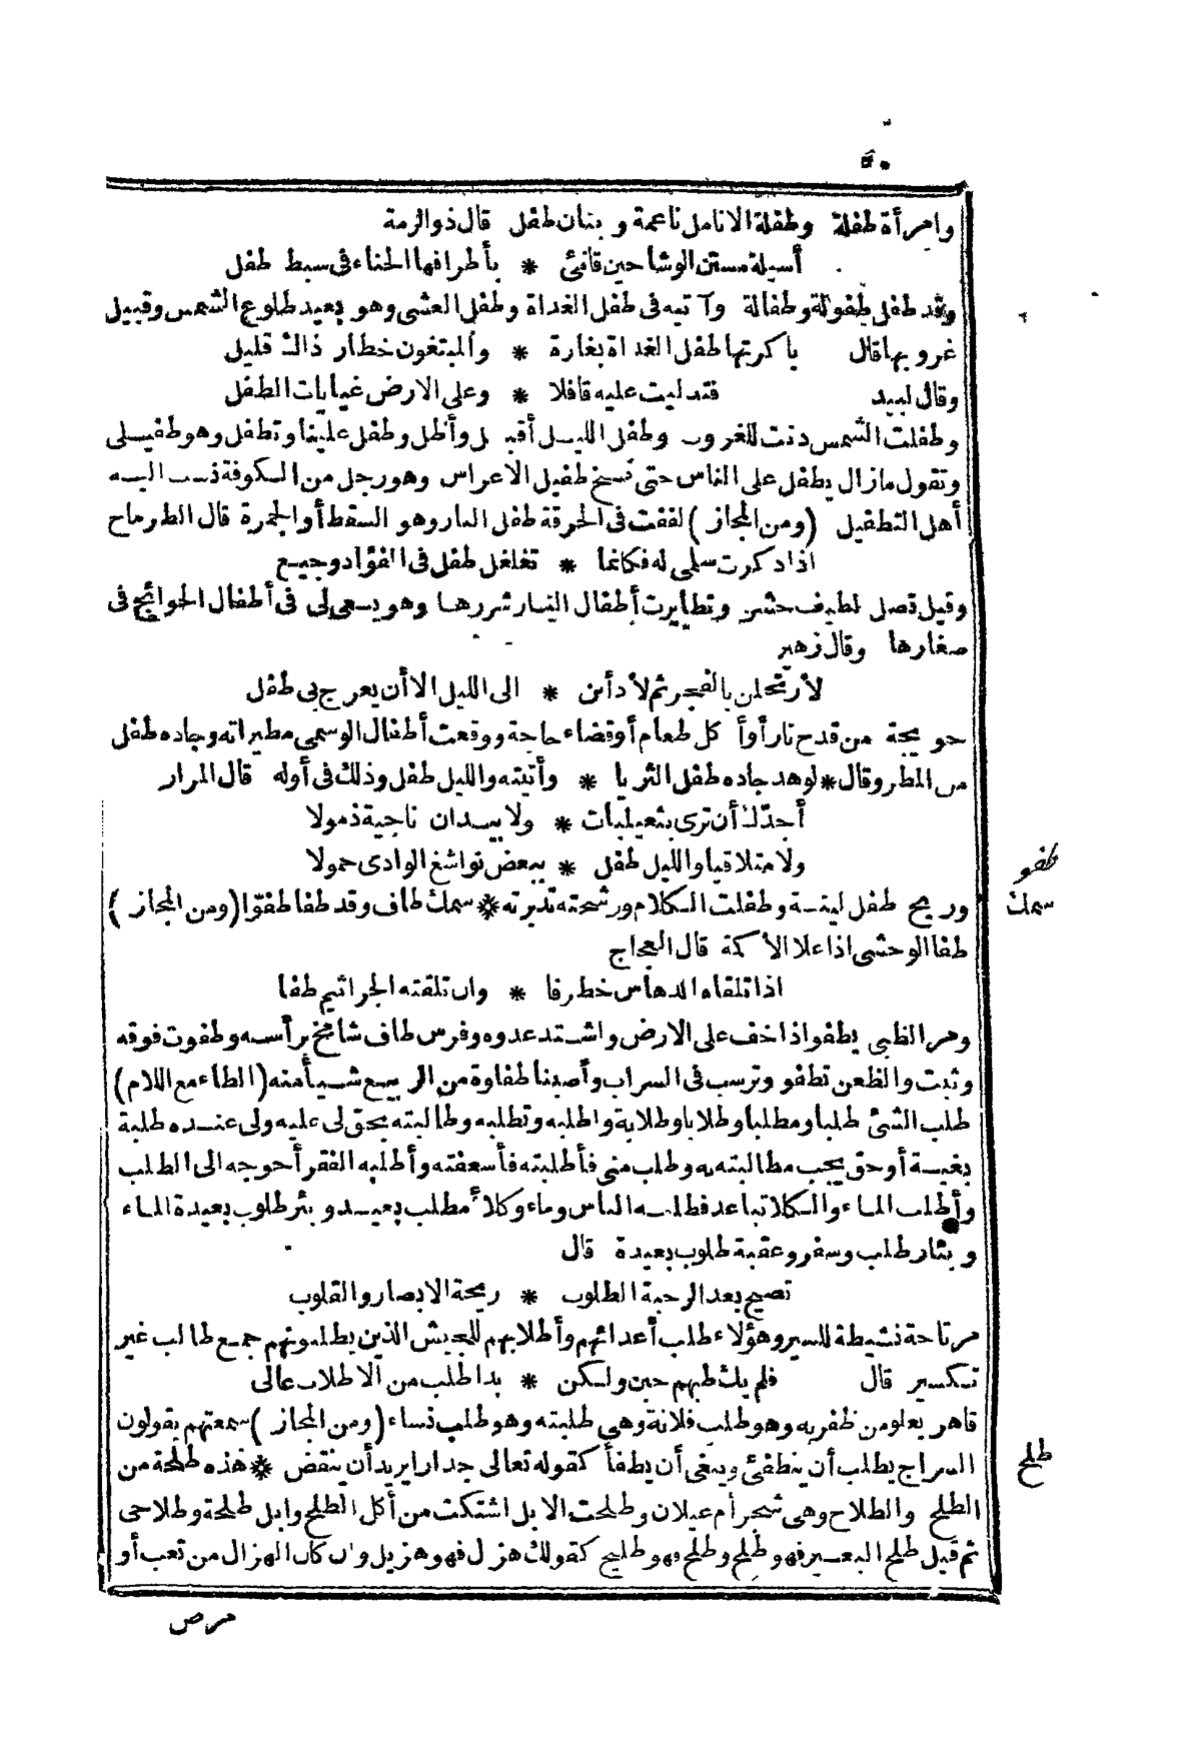 ٥٠
وامرأة طفلة وطفلة الانامل ناعمة وبنان طفل قال ذوالرمة
أسيلة مستن الوشاحين قانئ * بأطرافها الحناء فى سبط طفل
وقد طفل طفولة وطفالة وآتيه فى طفل الغداة وطفل العشى وهو بعيد طلوع الشمس وقبيل
غروبها قال باكرتها طفل الغداة بغارة * والمبتغون خطار ذاك قليل
وقال لبيد فتدليت عليه قافلا * وعلى الارض غيايات الطفل
وطفلت الشمس دنت للغروب وطفل الليل أقبل وأظل وطفل علينا وتطفل وهو طفيلى
وتقول مازال يطفل على الناس حتى نسخ طفيل الاعراس وهو رجل من الكوفة نسب اليه
أهل التطفيل (ومن المجاز) لففت فى الخرقة طفل النار وهو السقط أو الجمرة قال الطرماح
اذا ذكرت سلمى له فكانما * تغلغل طفل فى الفؤاد وجيع
وقيل نصل لطيف حشر وتطايرت أطفال النار شررها وهو يسعى لى فى أطفال الحوائج فى
صغارها وقال زهير
لأرتحلن بالفجر ثم لأدأبن * الى الليل الا أن يعرج بى طفل
حويجة من قدح نار أو أكل طعام أو قضاء حاجة ووقعت أطفال الوسمى مطيراته وجاده طفل
من المطر وقال * لوهد جاده طفل الثريا * وأتيته والليل طفل وذلك فى أوله قال المرار
أجدّك أن ترى بثعيلبات * ولا بيدان ناجية ذمولا
ولا متلاقيا والليل طفل * ببعض نواشغ الوادى حمولا
وريح طفل لينة وطفلت الكلام ورشحته تدبرته * سمك طاف وقد طفا طفوّا (ومن المجاز)
طفو
سمك
طفا الوحشى اذا علا الأكمة قال العجاج
اذا تلقاه الدهاس خطرفا * وان تلقته الجراثيم طفا
ومر الظبى يطفو اذا خف على الارض واشتد عدوه وفرس طاف شامخ برأسه وطفوت فوقه
وثبت والظعن تطفو وترسب فى السراب وأصبنا طفاوة من الربيع شيأ منه (الطاء مع اللام)
طلب الشئ طلبا ومطلبا وطلابا وطلابة واطلبه وتطلبه وطالبته بحق لى عليه ولى عنده طلبة
بغية أو حق يجب مطالبته به وطلب منى فأطلبته فأسعفته وأطلبه الفقر أحوجه الى الطلب
وأطلب الماء والكلا تباعد فطلبه الناس وماء وكلأ مطلب بعيد وبئر طلوب بعيدة الماء
وبئار طلب وسفر وعقبة طلوب بعيدة قال
تصبح بعد الرحبة الطلوب * ريحة الابصار والقلوب
مرتاحة نشيطة للسير وهؤلاء طلب أعدائهم وأطلابهم للجيش الذين يطلبونهم جمع طالب غير
تكسير قال فلم يك طبهم حبن ولكن * بدا طلب من الاطلاب عالى
قاهر يعلو من ظفر به وهو طلب فلانة وهى طلبته وهو طلب نساء (ومن المجاز) سمعتهم يقولون
السراج يطلب أن ينطفئ ويبغى أن يطفأ كقوله تعالى جدارا يريد أن ينقض * هذه طلحة من
طلح
الطلح والطلاح وهى شجر أم غيلان وطلحت الابل اشتكت من أكل الطلح وابل طلحة وطلاحى
ثم قيل طلح البعير فهو طلح وطلح فهو طليح كقولك هزل فهو هزيل وان كان الهزال من تعب أو
مرض